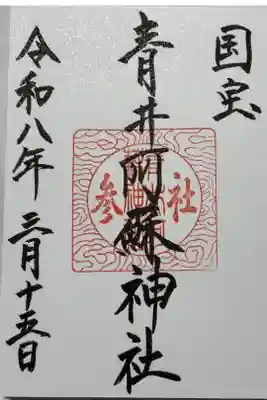 国宝
青井阿蘇神社
令和八年三月十五日
参社